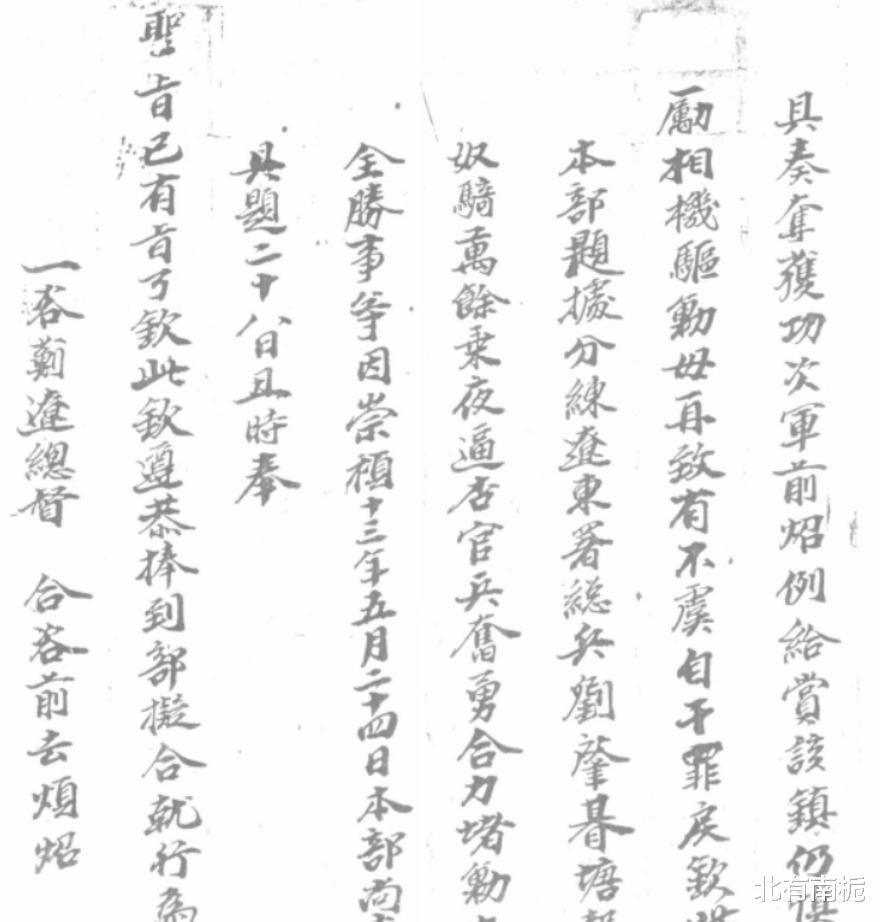 具奏奪獲功次軍前炤例給賞該鎮仍慎
勵相機驅勦毋再致有不虞自干罪戾欽
本部題據分練遼東署総兵劉肇基塘
奴騎萬餘乗夜逼杏官兵奮勇合力堵勦
全勝事等因崇禎十三年五月二十四日本部尚
具題二十八日丑時奉
聖旨已有旨了欽此欽遵恭捧到部擬合就行為
一咨薊遼總督 合咨前去煩炤
北有南栀